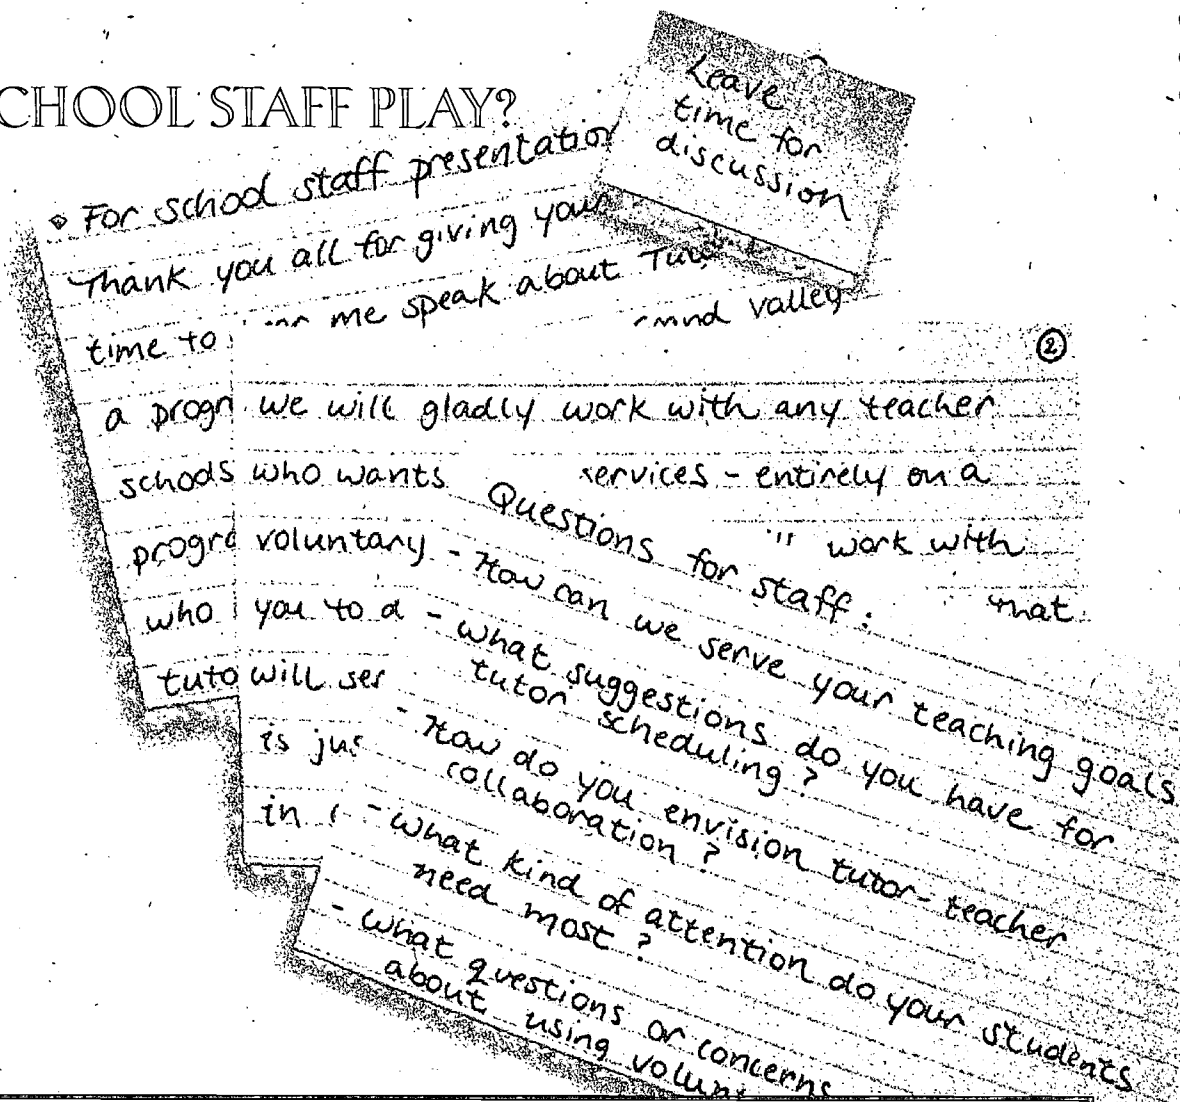 CHOOL STAFF PLAY?
Leave
time for
discussion
For school staff presentation
Thank you all for giving your
time to me speak about
mnd valley
a progr
schools
progra
who
tuto
2
we will gladly work with any teacher
who wants services - entirely on a
voluntary work with
you to a that
will ser
is jus
in
Questions for staff:
- How can we serve your teaching goals
- what suggestions do you have for
tutor scheduling?
- How do you envision tutor-teacher
collaboration?
- what kind of attention do your students
need most?
- what questions or concerns
about using volun